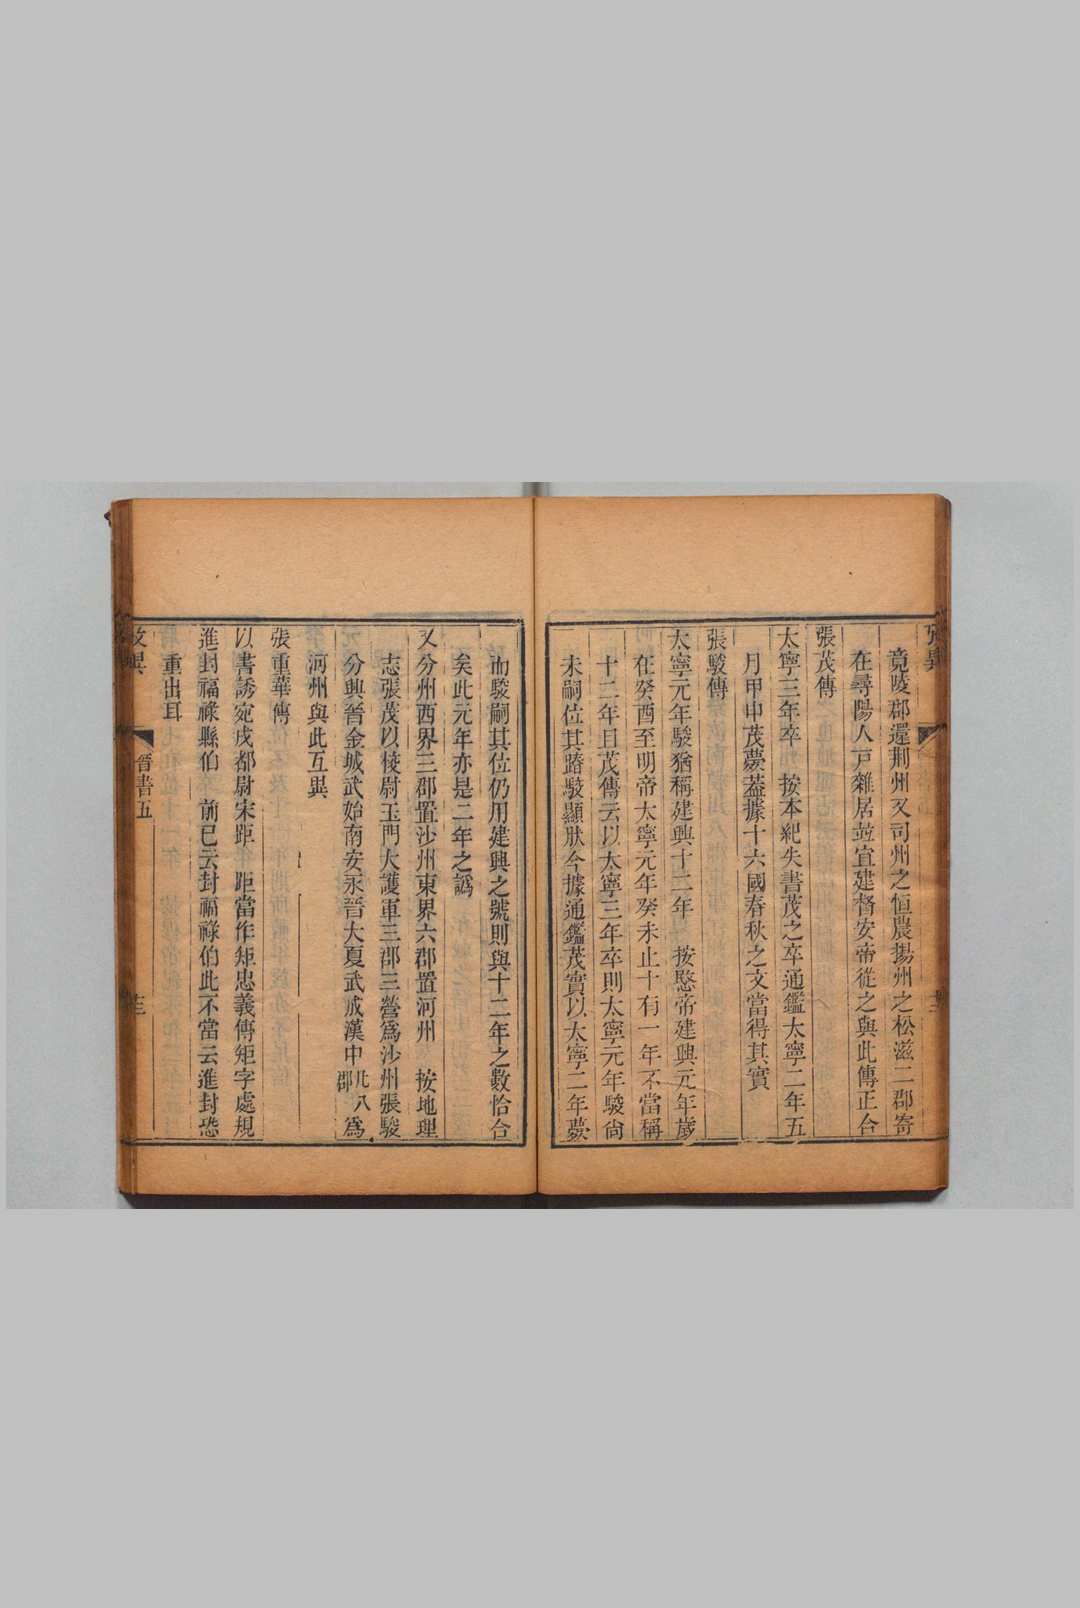 竟陵郡還荆州又司州之恒農揚州之松滋二郡寄
在尋陽人戸雜居並宜建督安帝從之與此傳正合
張茂傳
太寧三年卒　按本紀失書茂之卒通鑑太寧二年五
月甲申茂薨蓋據十六國春秋之文當得其實
張駿傳
太寧元年駿猶稱建興十二年　按愍帝建興元年歲
在癸酉至明帝太寧元年癸未止十有一年不當稱
十二年且茂傳云以太寧三年卒則太寧元年駿尙
未嗣位其踳駮顯肰今據通鑑茂實以太寧二年薨
而駿嗣其位仍用建興之號則與十二年之數恰合
矣此元年亦是二年之譌
又分州西界三郡置沙州東界六郡置河州　按地理
志張茂以校尉玉門大護軍三郡三營爲沙州張駿
分興晉金城武始南安永晉大夏武成漢中凡八郡爲
河州與此互異
張重華傳
以書誘宛戍都尉宋距　距當作矩忠義傳矩字處規
進封福祿縣伯　前已云封福祿伯此不當云進封恐
重出耳
攷異
晉書五